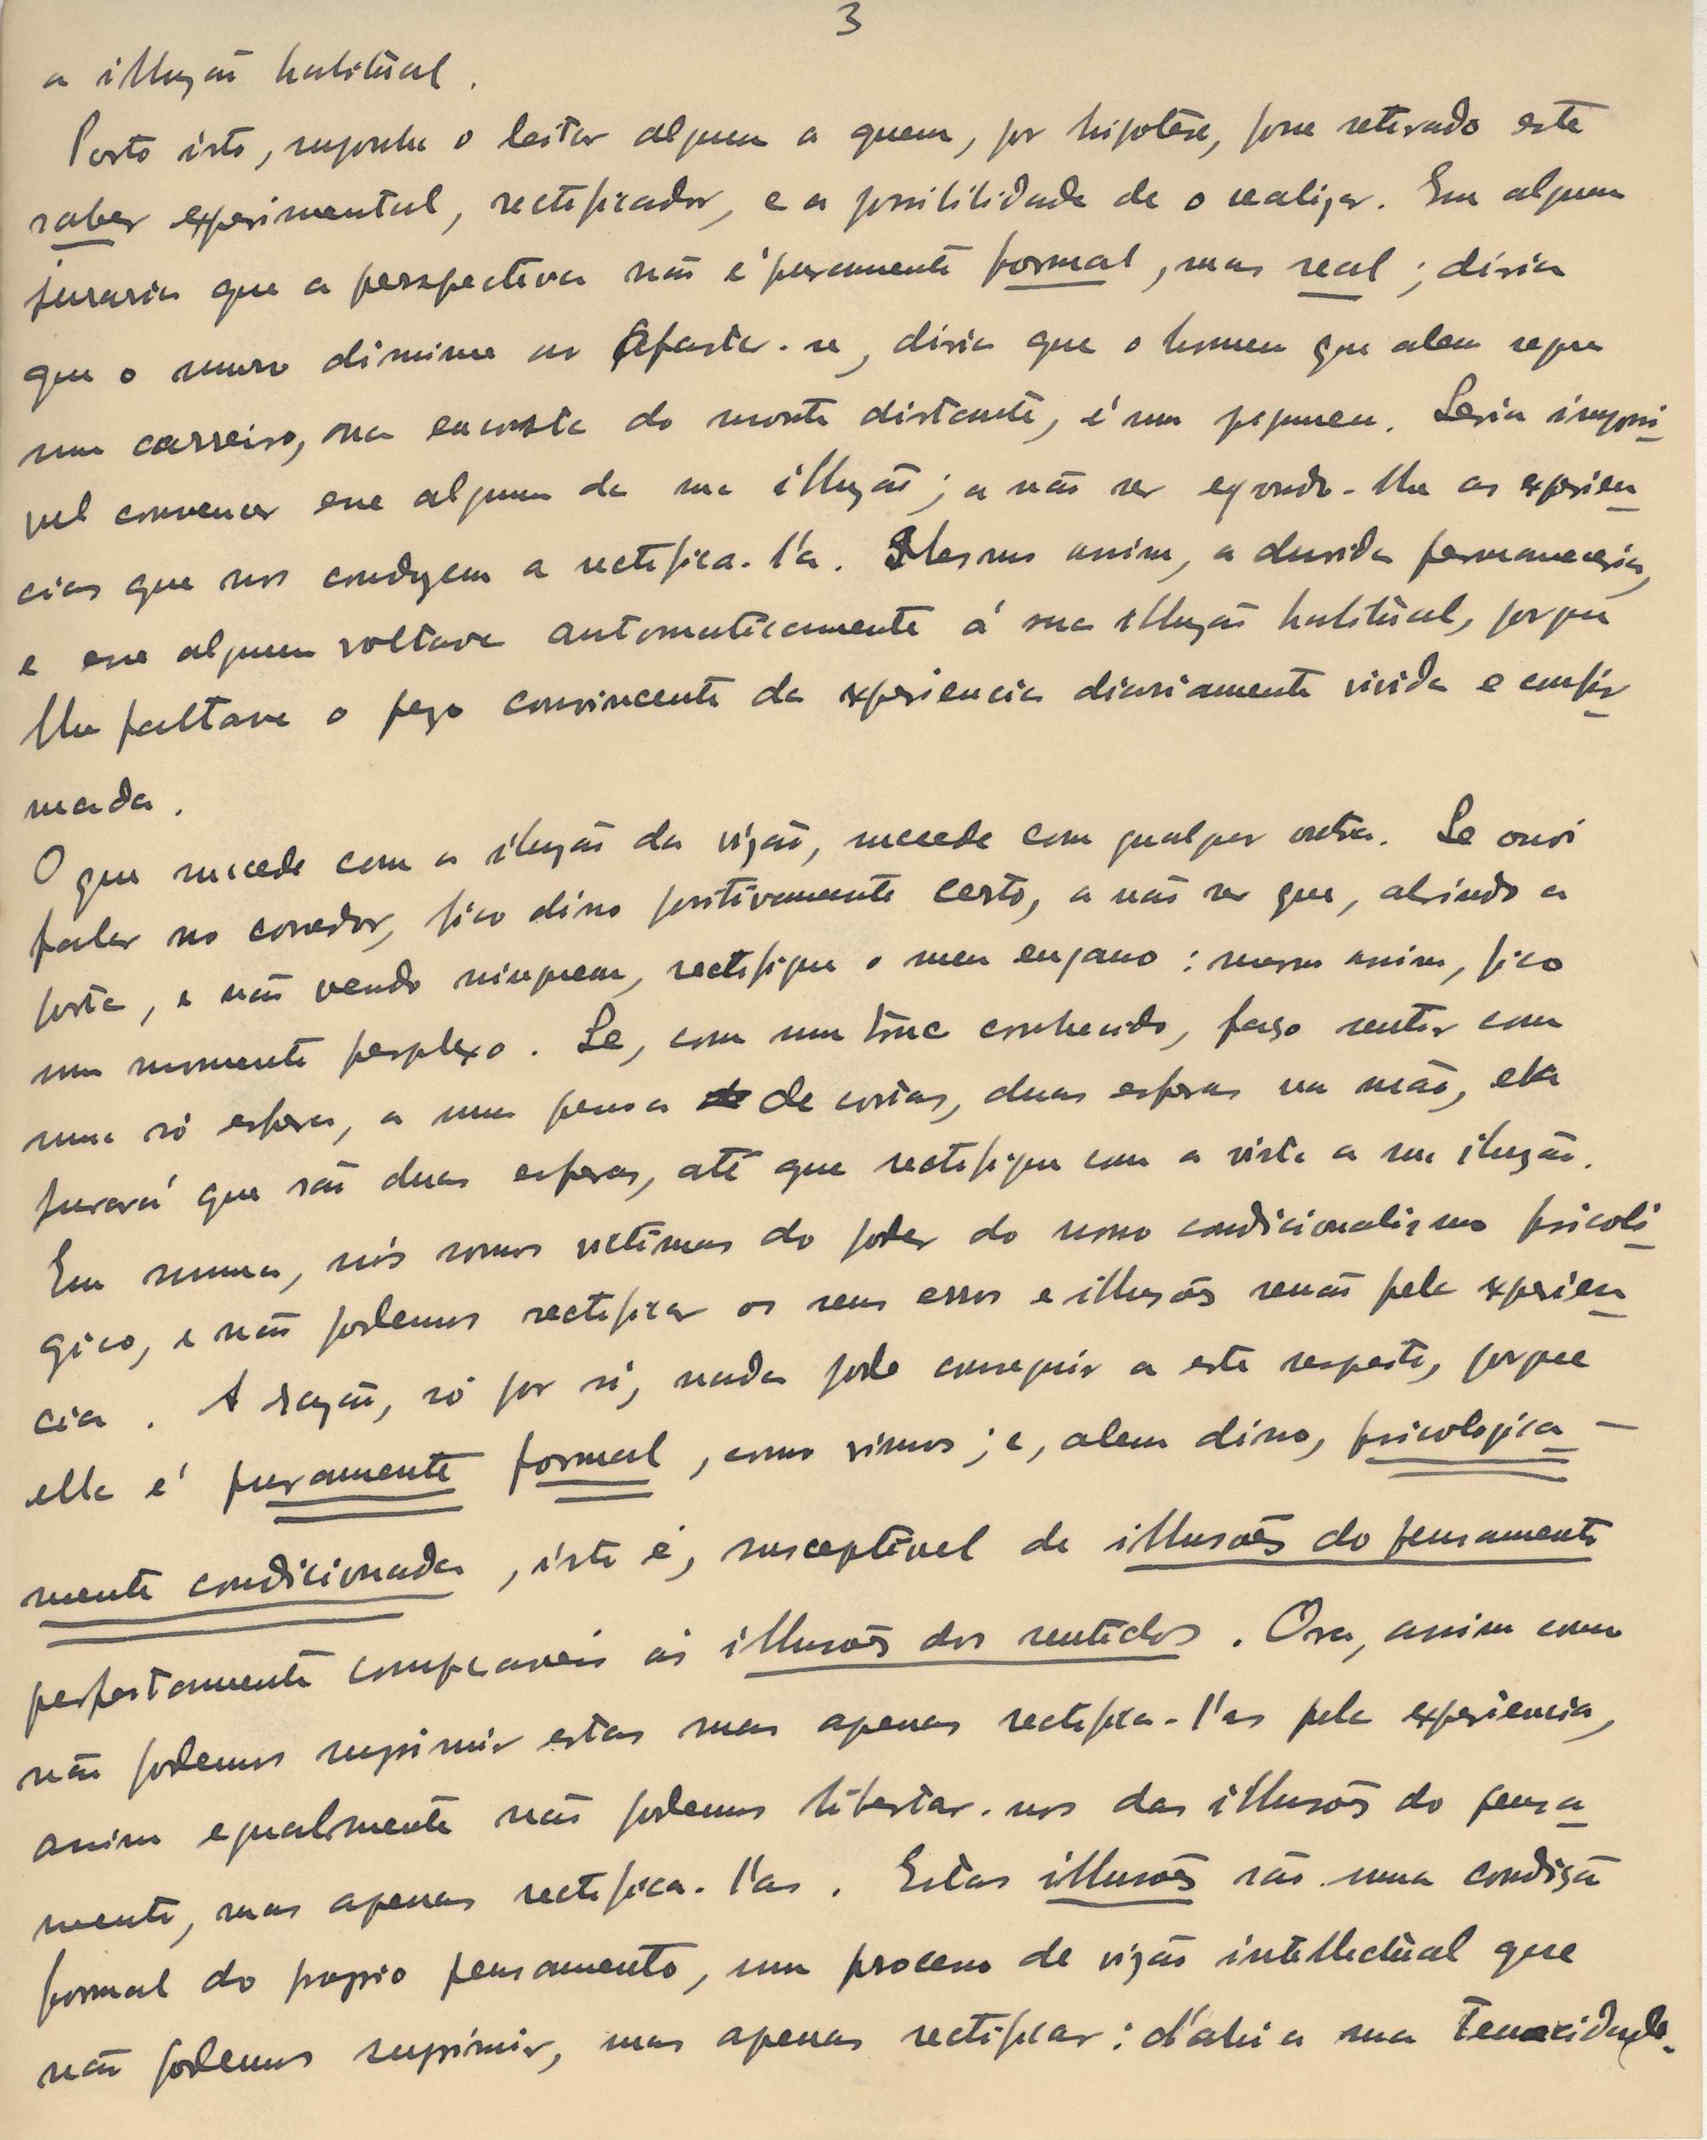 3
a illuzão habitüal.
Posto isto, suponha o leitor alguem a quem, por hipotése, fosse retirado este
saber experimental, rectificador, e a possibilidade de o realizar. Esse alguem
juraria que a perspectiva não é puramente formal, mas real; diria
que o muro diminue ao afastar-se, diria que o homem que alem segue
num carreiro, na encosta do monte distante, é um pigmeu. Seria impossi
vel convencer esse alguem da sua illuzão; a não ser expondo-lhe as experien
cias que nos conduzem a rectifica-l'a. Mesmo assim, a duvida permaneceria,
e esse alguem voltava automaticamente á sua illuzão habitüal, porque
lhe faltava o pezo convincente da experiencia diariamente vivida e confir
mada.
O que sucede com a iluzão da vizão, sucede com qualquer outra. Se ouvi
falar no corredor, fico disso positivamente certo, a não ser que, abrindo a
porta, e não vendo ninguem, rectifique o meu engano: mesmo assim, fico
um momento perplexo. Se, com um truc conhecido, faço sentir com
uma só esfera, a uma pessoa de costas, duas esferas na mão, ela
jurará que são duas esferas, até que rectifique com a vista a sua iluzão.
Em suma, nós somos victimas do poder do nosso condicionalismo psicoló
gico, e não podemos rectificar os seus erros e illusões senão pela experien
cia. A razão, só por si, nada pode conseguir a este respeito, porque
ella é puramente formal, como vimos; e, alem disso, psicologica-
mente condicionada, isto é, susceptivel de illusões do pensamento
perfeitamente comparaveis ás illusões dos sentidos. Ora, assim como
não podemos suprimir estas mas apenas rectifica-l'as pela experiencia,
assim egualmente não podemos libertar-nos das illusões do pensa
mento, mas apenas rectifica-l'as. Estas illusões são uma condição
formal do proprio pensamento, um processo de vizão intellectüal que
não podemos suprimir, mas apenas rectificar: d'ahi a sua tenacidade.